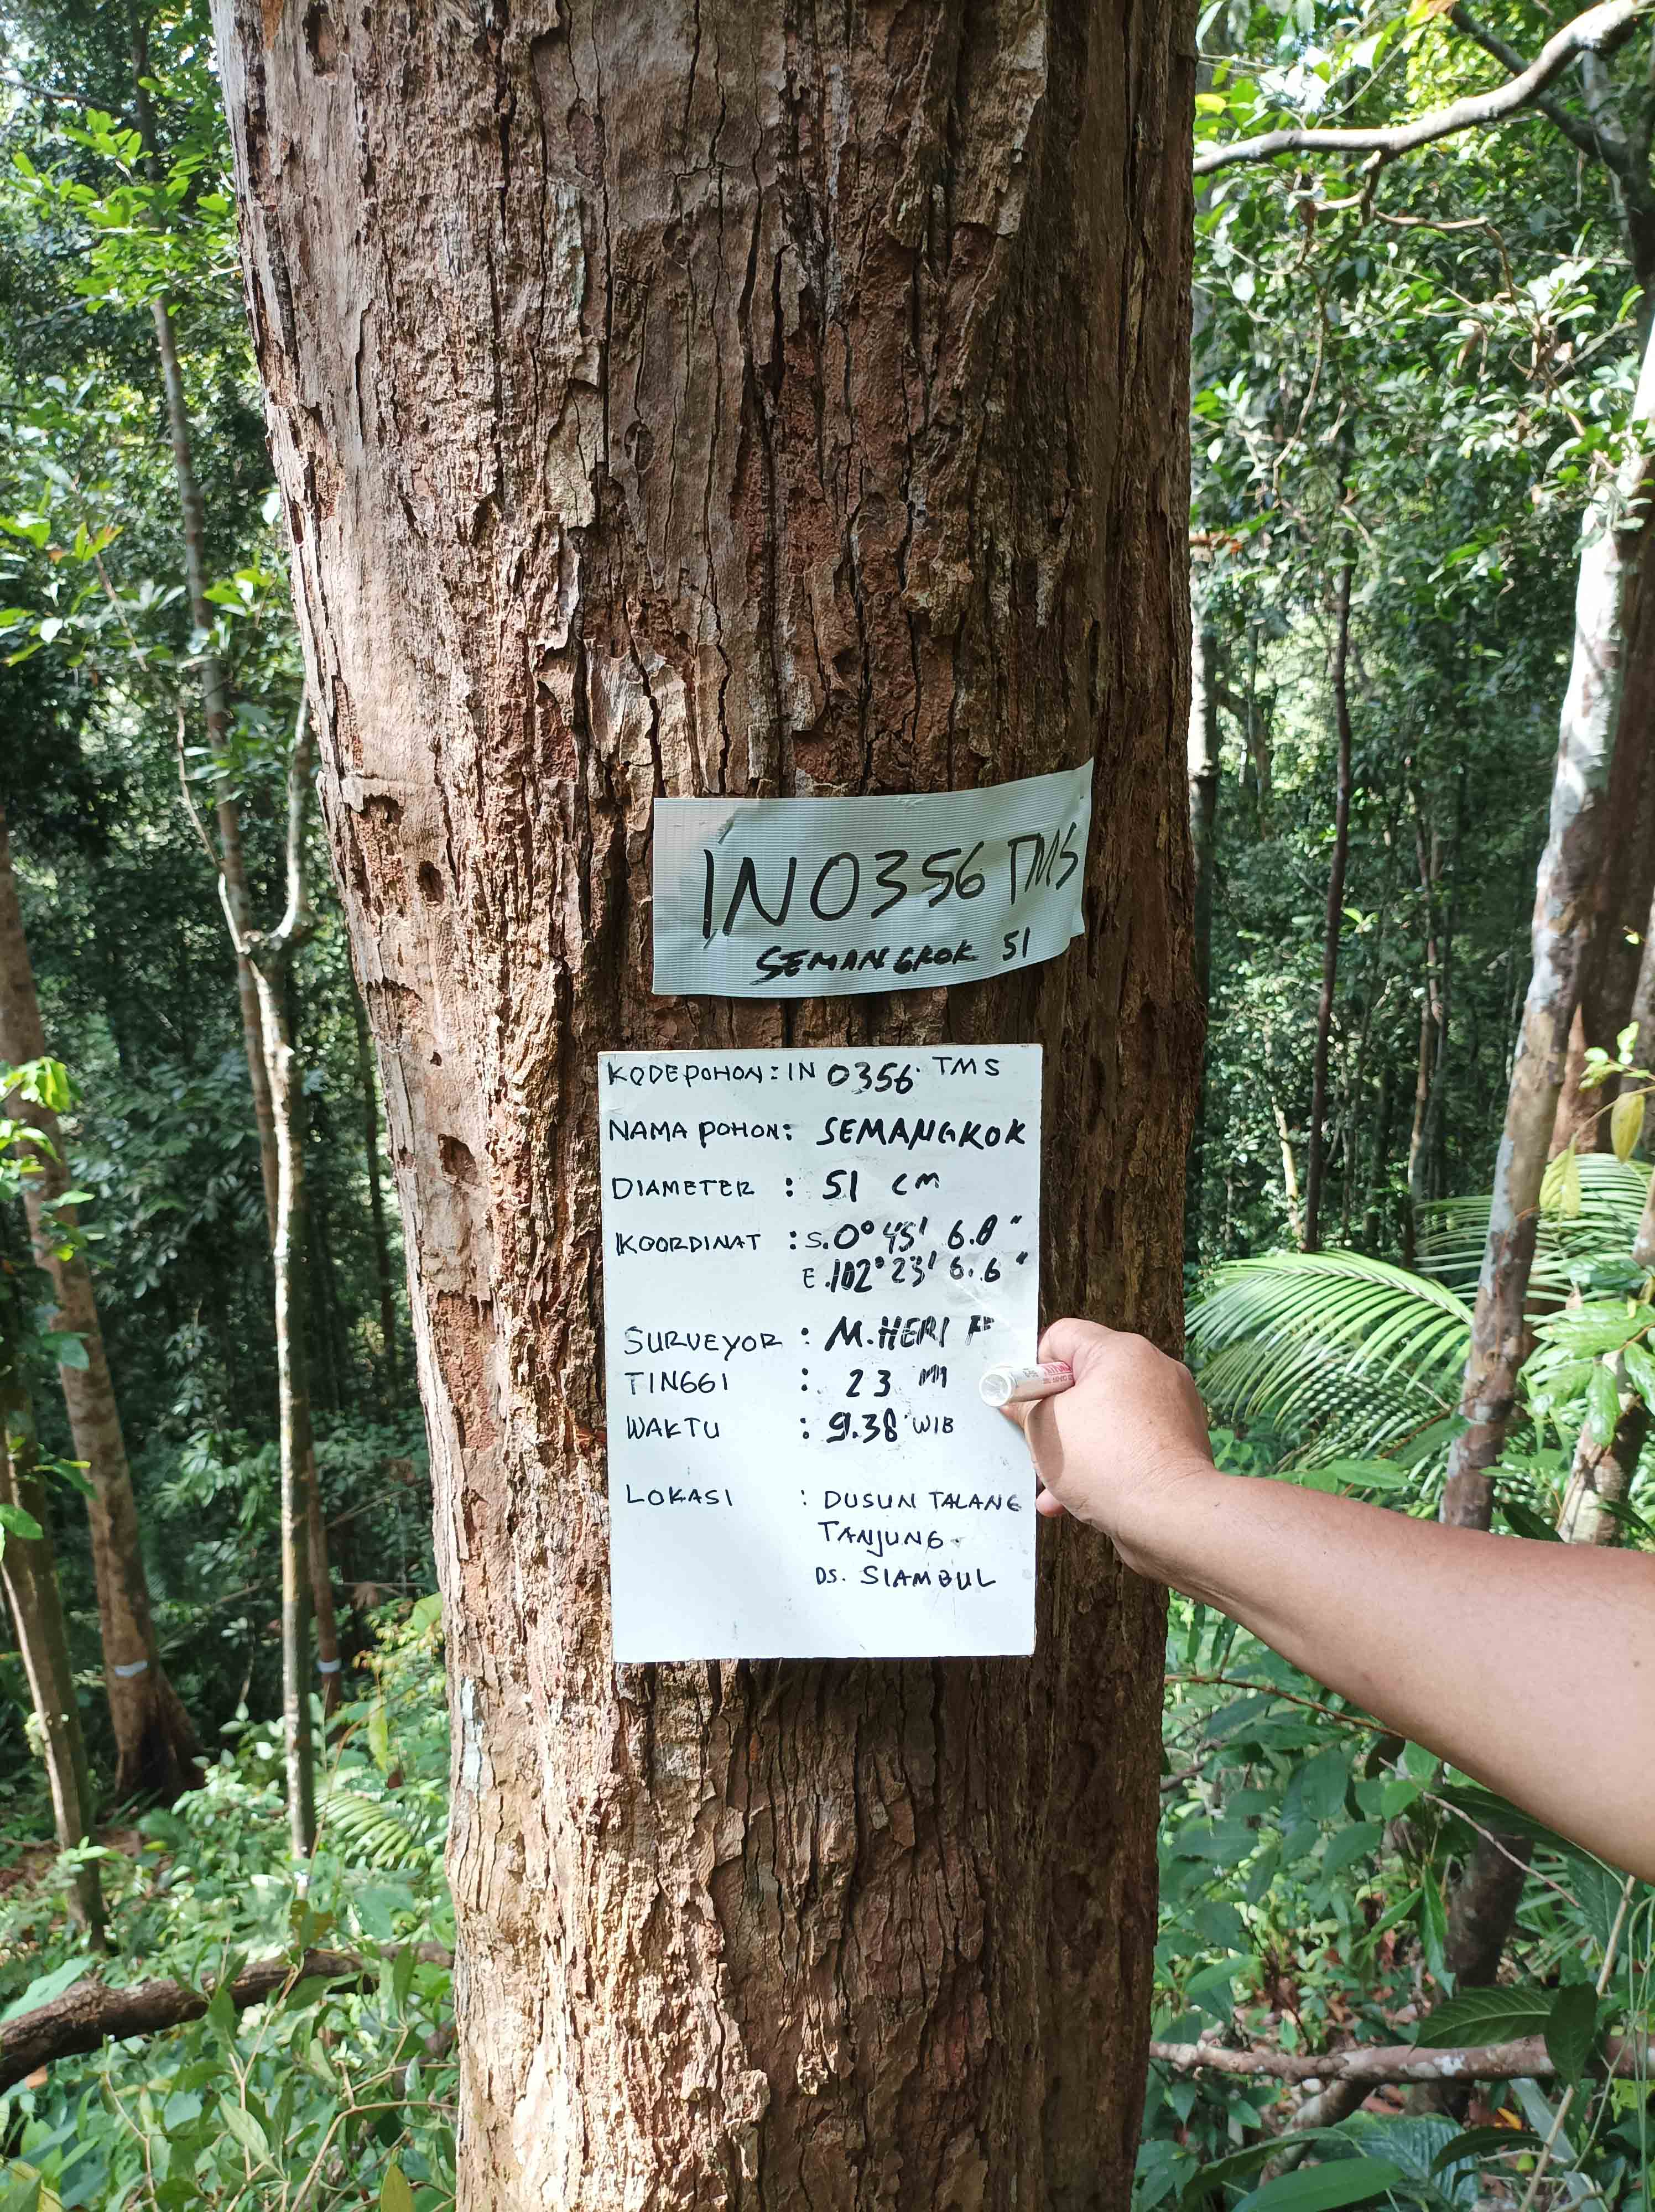 IN0356 TMS
SEMANGKOK 51
KODE POHON: IN 0356 TMS
NAMA POHON: SEMANGKOK
DIAMETER : 51 CM
KOORDINAT : S. 0° 45' 6.8"
E. 102° 23' 6.6"
SURVEYOR : M. HERI
TINGGI : 23 M
WAKTU : 9.38 WIB
LOKASI : DUSUN TALANG
TANJUNG
DS. SIAMBUL